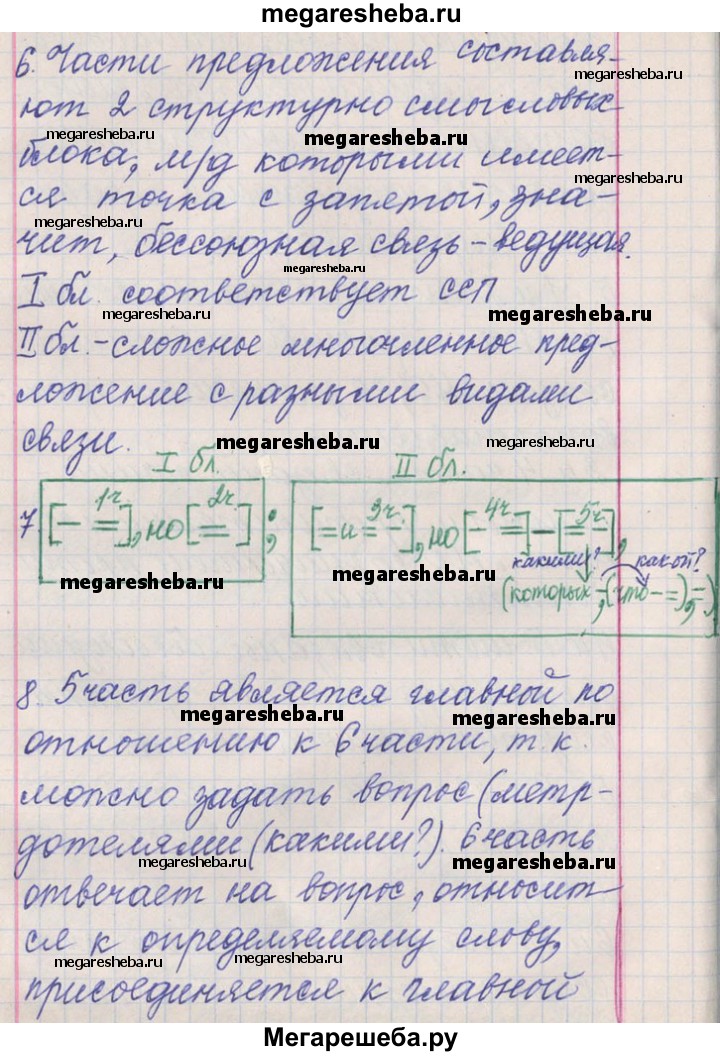 megaresheba.ru
6. Части предложения составля-
megaresheba.ru
ют 2 структурно смысловых
megaresheba.ru megaresheba.ru
блока, м/д которыми имеет-
megaresheba.ru
ся точка с запятой, зна-
megaresheba.ru
чит, бессоюзная связь – ведущая.
megaresheba.ru
I бл. соответствует ССП
megaresheba.ru megaresheba.ru
II бл. – сложное многочленное пред-
ложение с разными видами
связи.
megaresheba.ru megaresheba.ru
I бл. II бл.
1ч. 2ч. 3ч. 4ч. 5ч.
7. [– =], но [=] ; [= и = –], но [– =] – [=],
какими? какой?
megaresheba.ru megaresheba.ru
(которых –, (что – =), =)
8. 5 часть является главной по
megaresheba.ru megaresheba.ru
отношению к 6 части, т.к.
можно задать вопрос (метр-
дотелями (какими?). 6 часть
megaresheba.ru megaresheba.ru
отвечает на вопрос, относит-
ся к определяемому слову,
megaresheba.ru megaresheba.ru
присоединяется к главной
Мегарешеба.ру